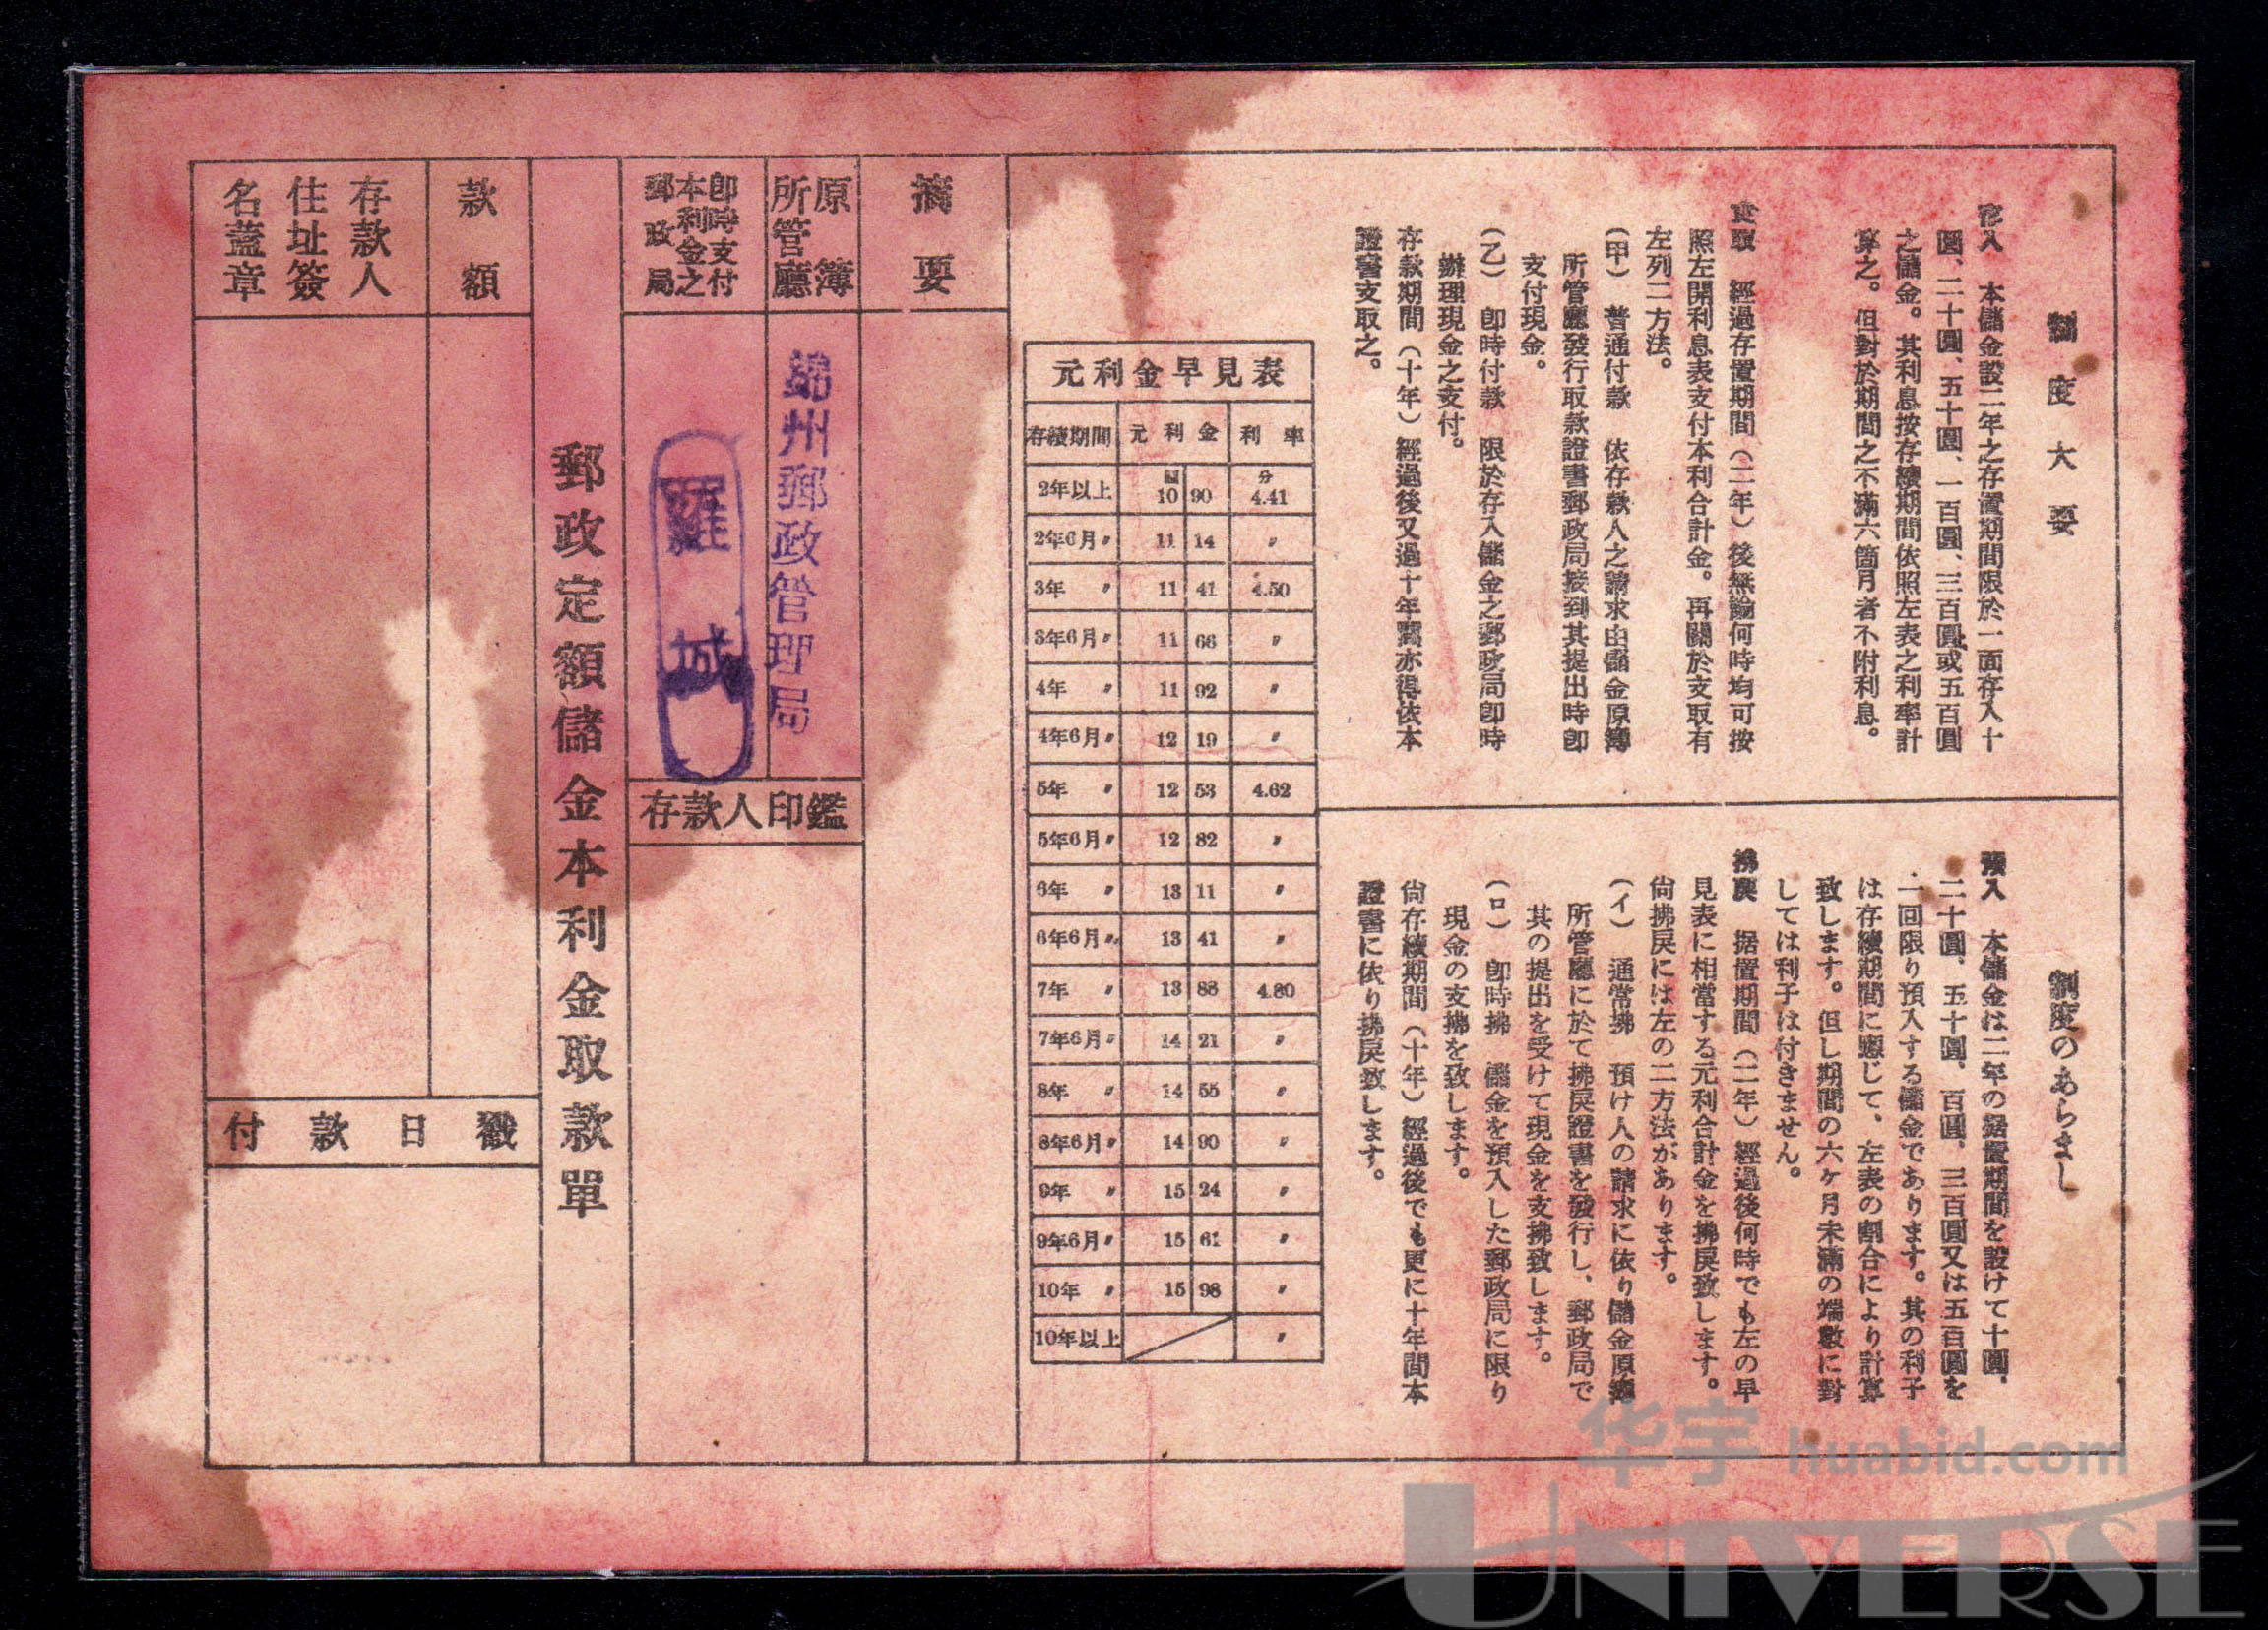 制度大要
存入　本儲金設二年之存置期間限於一面存入十
圓、二十圓、五十圓、一百圓、三百圓或五百圓
之儲金。其利息按存續期間依照左表之利率計
算之。但對於期間之不滿六箇月者不附利息。
支取　經過存置期間（二年）後無論何時均可按
照左開利息表支付本利合計金。再關於支取有
左列二方法。
（甲）　普通付款　依存款人之請求由儲金原簿
所管廳發行取款證書郵政局接到其提出時卽
支付現金。
（乙）　卽時付款　限於存入儲金之郵政局卽時
辦理現金之支付。
存款期間（十年）經過後又過十年間亦得依本
證書支取之。
制度のあらまし
預入　本儲金は二年の据置期間を設けて十圓、
二十圓、五十圓、百圓、三百圓又は五百圓を
一回限り預入する儲金であります。其の利子
は存續期間に應じて、左表の割合により計算
致します。但し期間の六ヶ月未滿の端數に對
しては利子は付きません。
拂戾　据置期間（二年）經過後何時でも左の早
見表に相當する元利合計金を拂戾致します。
尙拂戾には左の二方法があります。
（イ）　通常拂　預け人の請求に依り儲金原簿
所管廳に於て拂戾證書を發行し、郵政局で
其の提出を受けて現金を支拂致します。
（ロ）　卽時拂　儲金を預入した郵政局に限り
現金の支拂を致します。
尙存續期間（十年）經過後でも更に十年間本
證書に依り拂戾致します。
元利金早見表
存續期間 元利金 利率
2年以上 圓 10 90 分 4.41
2年6月〃 11 14 〃
3年 〃 11 41 4.50
3年6月〃 11 66 〃
4年 〃 11 92 〃
4年6月〃 12 19 〃
5年 〃 12 53 4.62
5年6月〃 12 82 〃
6年 〃 13 11 〃
6年6月〃 13 41 〃
7年 〃 13 88 4.80
7年6月〃 14 21 〃
8年 〃 14 55 〃
8年6月〃 14 90 〃
9年 〃 15 24 〃
9年6月〃 15 61 〃
10年 〃 15 98 〃
10年以上 〃
摘要
原簿
所管廳
錦州郵政管理局
卽時支付
本利金之
郵政局
羅城
存款人印鑑
郵政定額儲金本利金取款單
款額
存款人
住址簽
名蓋章
付款日戳
华宇 huabid.com
UNIVERSE